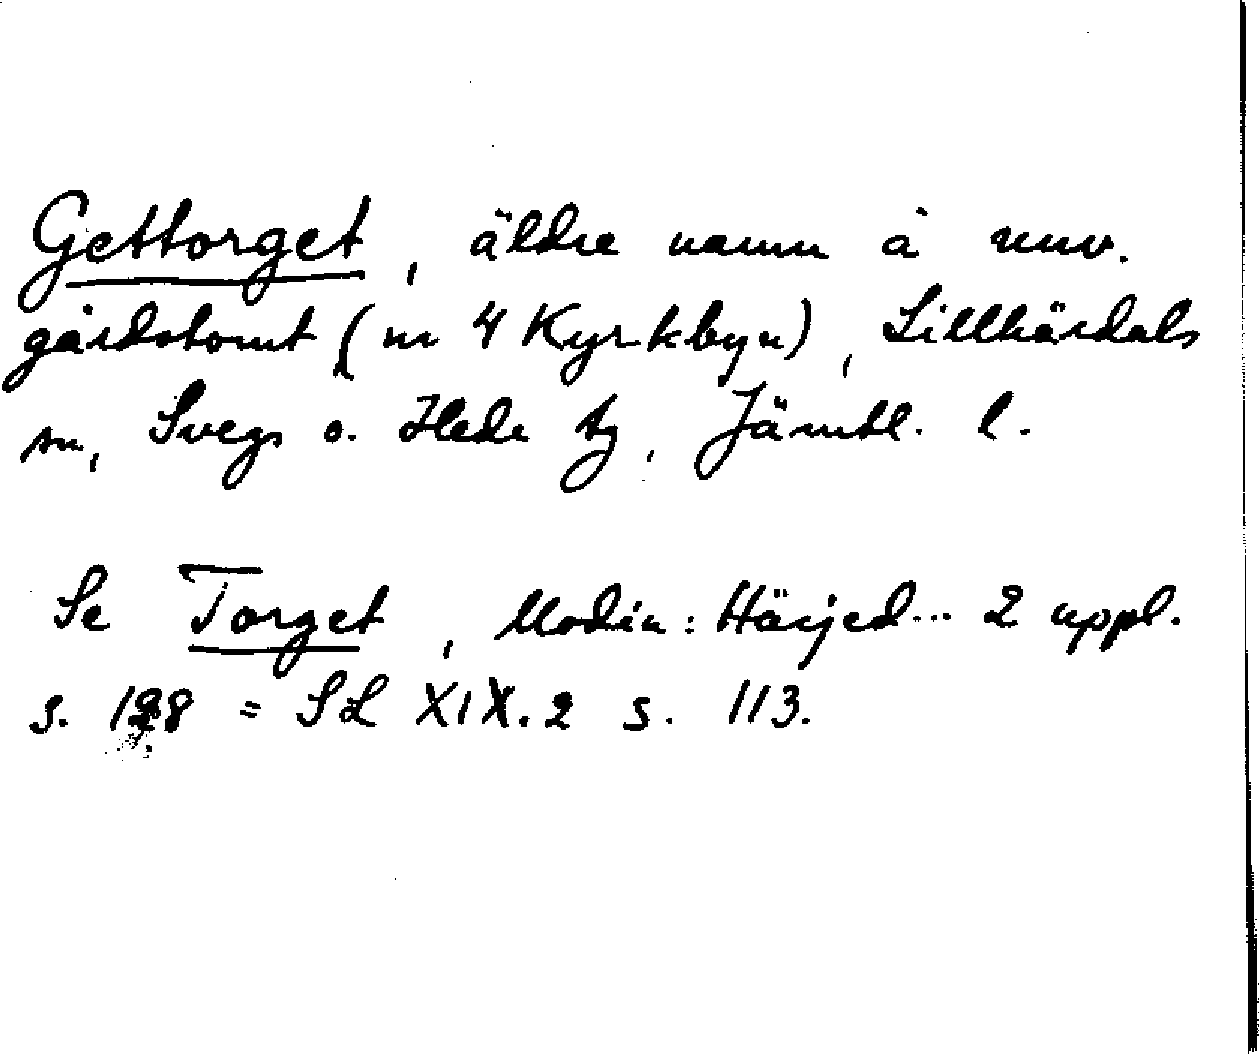 Gettorget, äldre namn å nuv.
gårdstomt (nr 4 Kyrkbyn), Lillhärdals
sn, Svegs o. Hede tg, Jämtl. l.
Se Torget, Modin: Härjed... 2 uppl.
s. 128 = SL XIX.2 s. 113.